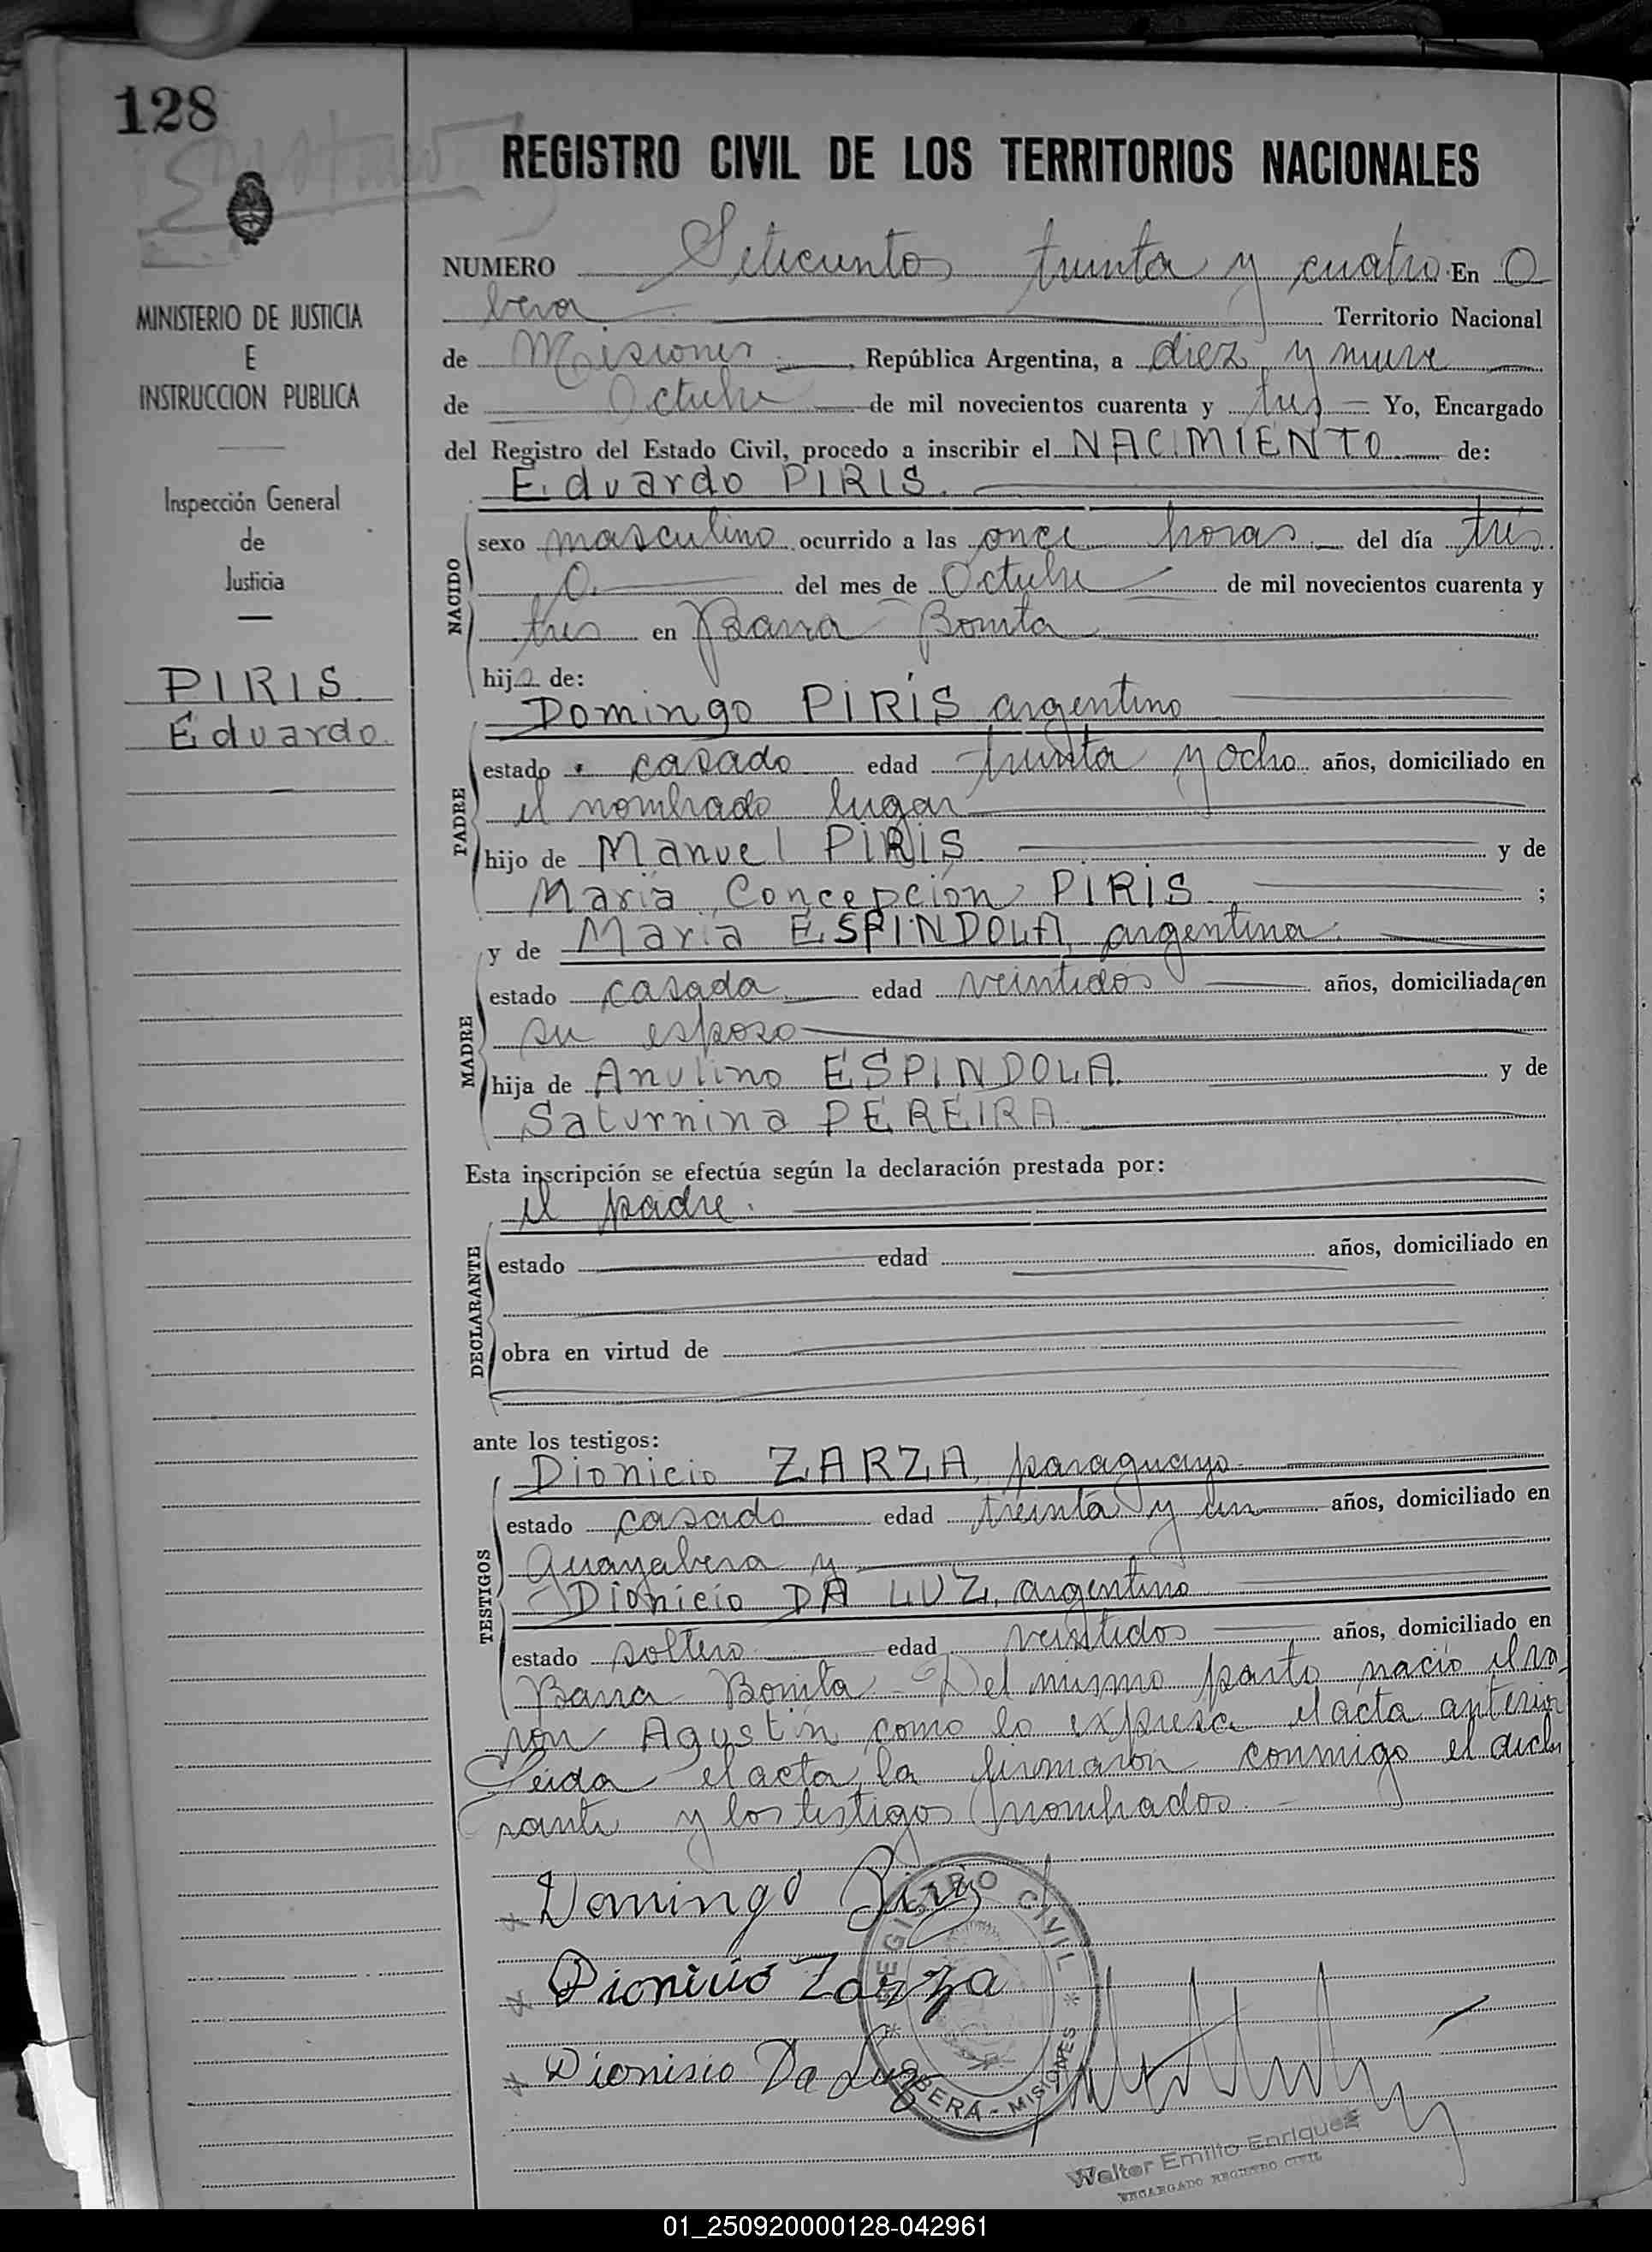 128
REGISTRO CIVIL DE LOS TERRITORIOS NACIONALES
MINISTERIO DE JUSTICIA
E
INSTRUCCION PUBLICA
Inspección General
de
Justicia
PIRIS
Eduardo
NUMERO Setecientos treinta y cuatro En O
bera Territorio Nacional
de Misiones República Argentina, a diez y nueve
de Octubre de mil novecientos cuarenta y tres Yo, Encargado
del Registro del Estado Civil, procedo a inscribir el NACIMIENTO de:
Eduardo PIRIS
NACIDO
sexo masculino ocurrido a las once horas del día tres
o del mes de Octubre de mil novecientos cuarenta y
tres en Barra Bonita
hijo de:
Domingo PIRIS argentino
PADRE
estado casado edad treinta y ocho años, domiciliado en
el nombrado lugar
hijo de Manuel PIRIS y de
María Concepción PIRIS ;
y de María ESPINDOLA, argentina
MADRE
estado casada edad veintidos años, domiciliada en
su esposo
hija de Anulino ESPINDOLA y de
Saturnina PEREIRA
Esta inscripción se efectúa según la declaración prestada por:
el padre.
DECLARANTE
estado edad años, domiciliado en
obra en virtud de
ante los testigos:
Dionicio ZARZA, paraguayo
TESTIGOS
estado casado edad treinta y un años, domiciliado en
Guayabera y
Dionicio DA LUZ, argentino
estado soltero edad veintidos años, domiciliado en
Barra Bonita - Del mismo parto nació el va
ron Agustín como lo expresa el acta anterior
Leida el acta, la firmaron conmigo el decla
rante y los testigos nombrados.
Domingo Piris
Dionicio Zarza
Dionisio Da Luz
REGISTRO CIVIL
OBERA - MISIONES
Walter Emilio Enriquez
ENCARGADO REGISTRO CIVIL
01_250920000128-042961